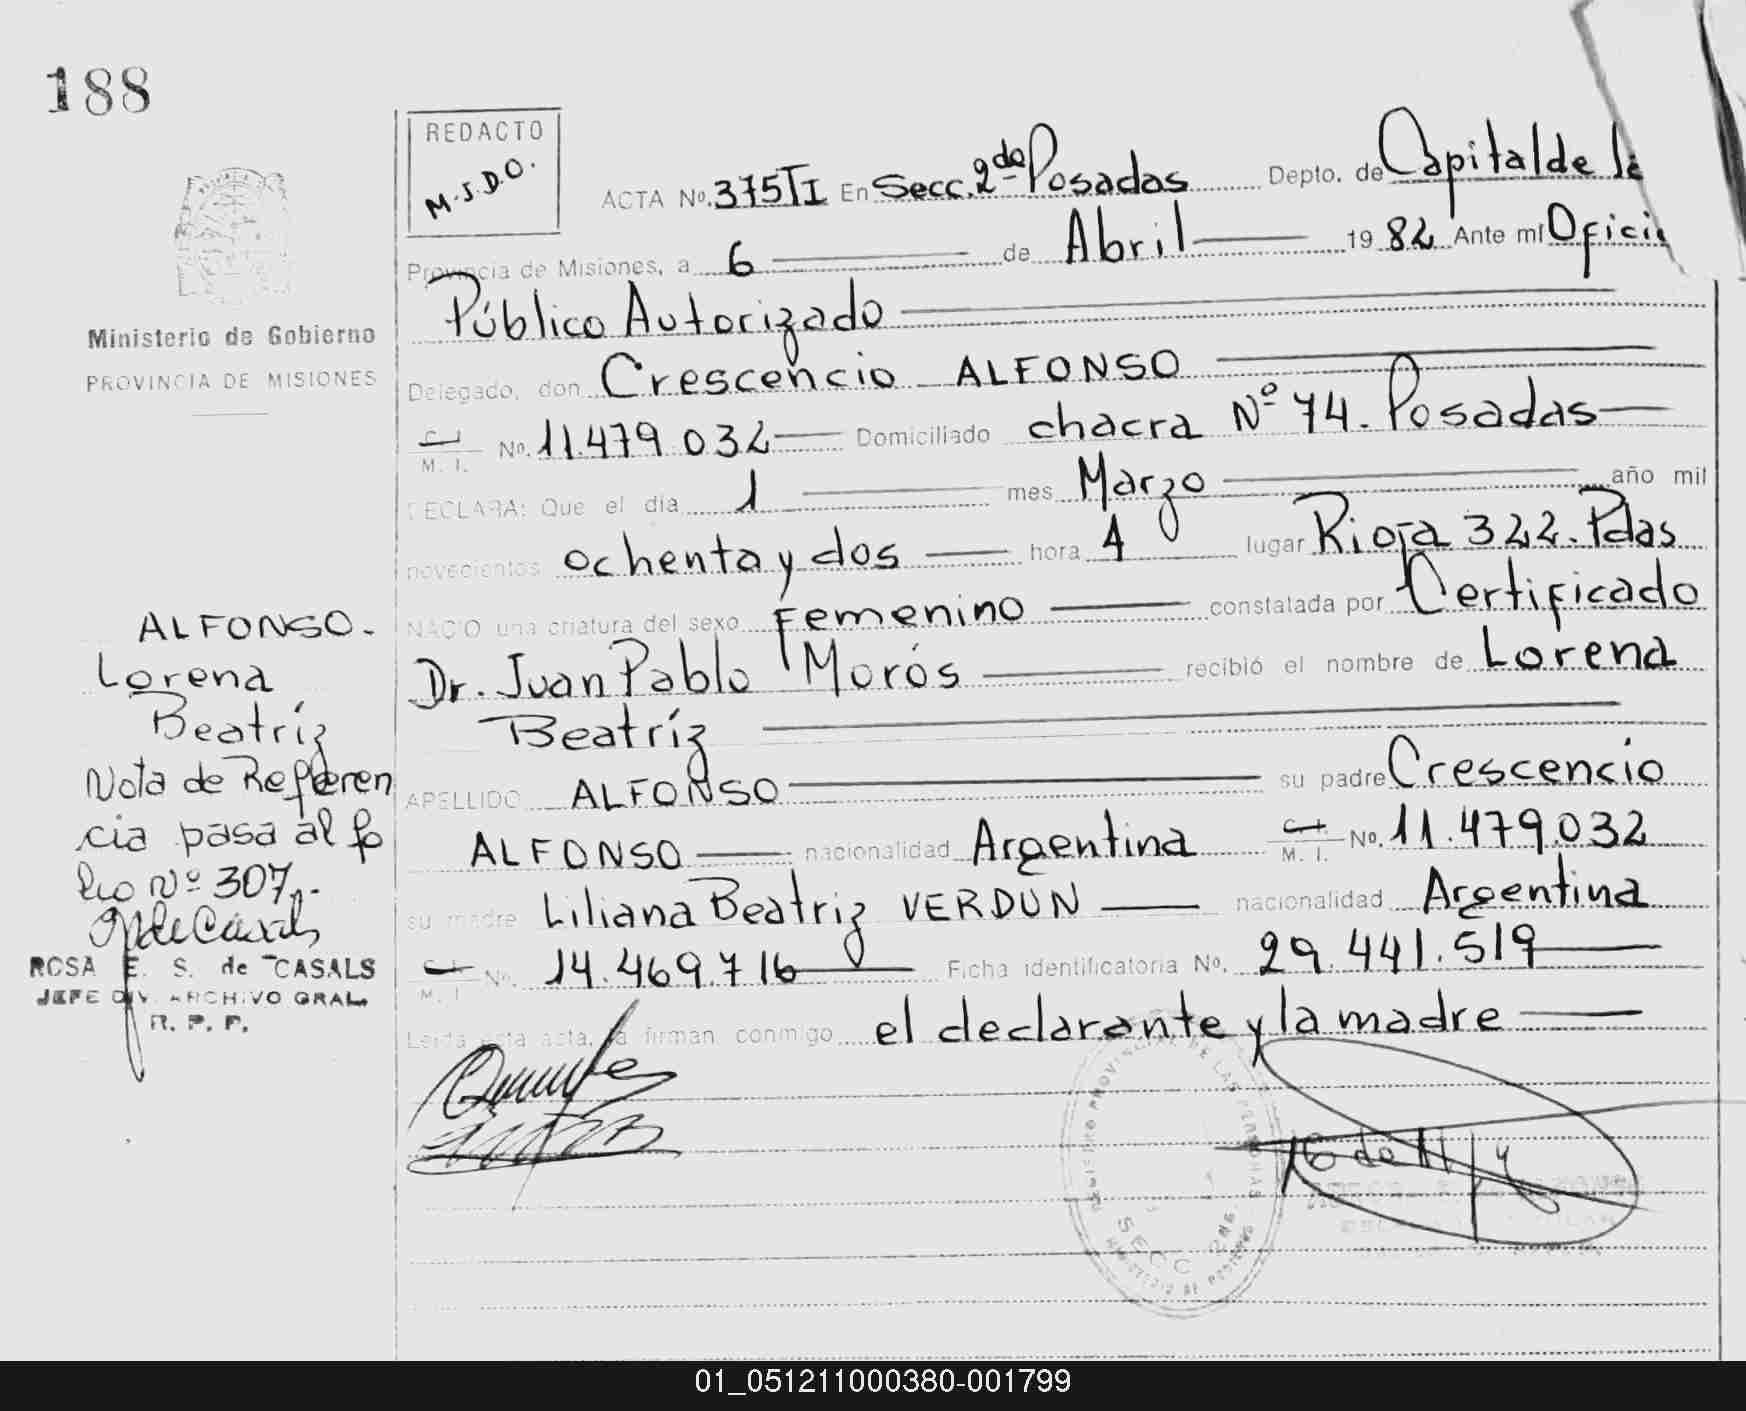 188
REDACTO
M.S.D.O.
ACTA No. 375TI En Secc. 2da Posadas Depto. de Capital de la
Provincia de Misiones, a 6 de Abril 1982 Ante mí Oficial
Público Autorizado
Delegado, don Crescencio ALFONSO
C. I.
M. I. No. 11.479.032 Domiciliado chacra Nº 74. Posadas
DECLARA: Que el día 1 mes Marzo año mil
novecientos ochenta y dos hora 4 lugar Rioja 322. Pdas
NACIO una criatura del sexo Femenino constatada por Certificado
Dr. Juan Pablo Morós recibió el nombre de Lorena
Beatríz
APELLIDO ALFONSO su padre Crescencio
ALFONSO nacionalidad Argentina C. I.
M. I. No. 11.479.032
su madre Liliana Beatriz VERDUN nacionalidad Argentina
C. I.
M. I. No. 14.469.716 Ficha identificatoria No. 29.441.519
Leída esta acta, la firman conmigo el declarante y la madre
Ministerio de Gobierno
PROVINCIA DE MISIONES
ALFONSO.
Lorena
Beatríz
Nota de Referen
cia pasa al fo
lio Nº 307.
ROSA E. S. de CASALS
JEFE DIV. ARCHIVO GRAL.
R. P. P.
REGISTRO PROVINCIAL DE LAS PERSONAS
SECC 2da.
01_051211000380-001799